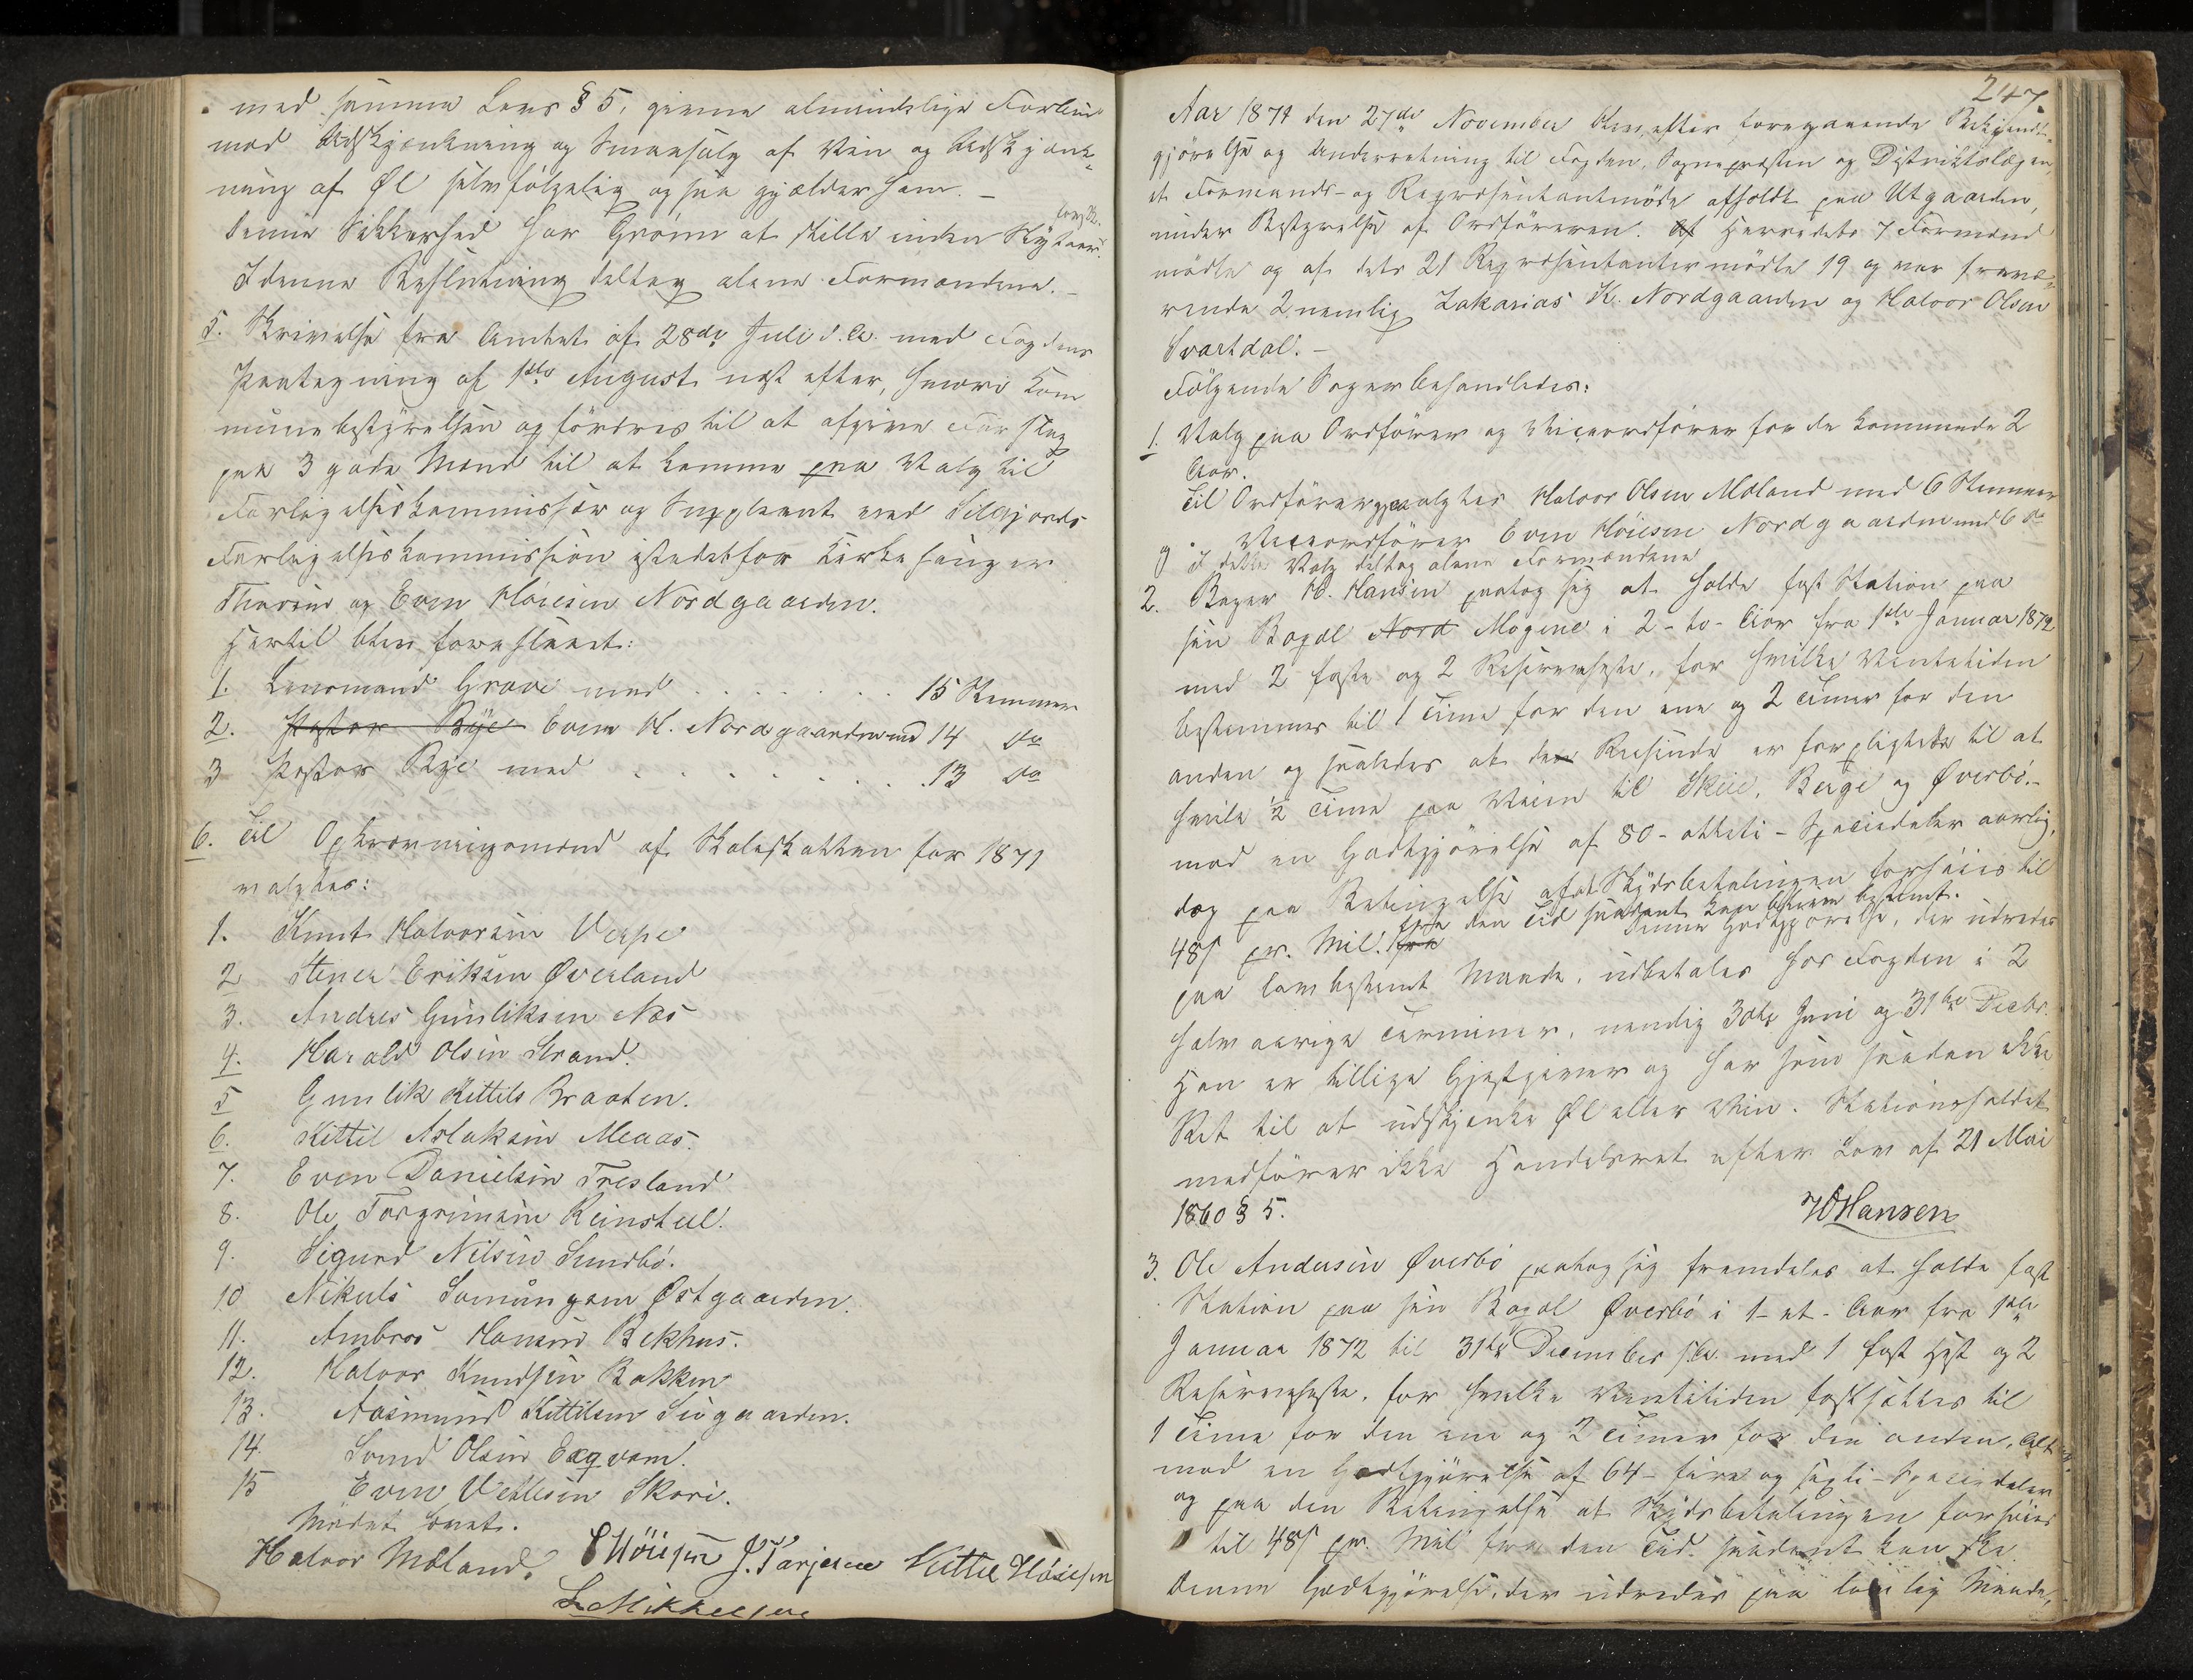 med samme Lovs § 5, givne almindelige Forbud
mod Udskjænkning og Smaasalg af Vin og Udskjænk-
ning af Øl selvfølgelig ogsaa gjælder ham. –
Denne Sikkerhed har Grönn at stille inden
I denne Beslutning deltog alene Formændene. –
5. Skrivelse fra Amtet af 28de Juli d. A. med Fogdens
Paategning af 1ste August næst efter, hvori Kom
munebestyrelsen opfordres til at afgive Forslag
paa 3 gode Mænd til at komme paa Valg til
Forligelseskommissær og Suppleant ved Silgjords
Forligelseskommission istedetfor Kirkesanger
og Even Höiesen Nordgaarden.
Hertil blev foreslaaet:
1. Lensmand Grave med . . . . . . . 15 Stemmer
2. Pastor Bye Even H. Nordgaarden med 14 do
3 Pastor Bye med . . . . . . . . 13 do
6. Til Opkrævningsmænd af Skoleskatten for 1871
valgtes:
1. Knut Halvorsen Verpe
2 Stener Eriksen Øverland
3. Andres Gunliksen Næs
4. Harald Olsen Strand.
5 Gunlik Kittils Braaten.
6. Kittil Aslaksen Meaas.
7. Even Danielsen Tresland
8. Ole Torgrimsen Reinstul.
9. Sigurd Nilsen Sundbö.
10 Nikuls Østgaarden.
11. Ambros Hansen Bekhus.
12. Halvor Knudsen Bakken
13. Aasmund Kittilsen Siogaarden.
14. Svend Olsen
15 Even Vetlesen Skori.
Mødet hævet.
Halvor Moland. E Höiesen J. Tarjesen Kittil Höiesen
L. Mikkelsen
247.
Aar 1871 den 27de November blev, efter foregaaende Bekjendt-
gjörelse og Underretning til Fogden, Sognepræsten og Distriktslægen,
et Formands- og Repræsentantmöde afholdt paa Utgaarden,
under Bestyrelse af Ordföreren. Af Herredets 7 Formænd
mödte og af dets 21 Repræsentanter mödte 19 og var fravæ-
rende 2 nemlig Zakarias K. Nordgaarden og Halvor Olsen
Svartdal. –
Fölgende Sager behandledes:
1. Valg paa Ordförer og Viceordförer for de kommende 2
Aar.
Til Ordförer valgtes Halvor Olsen Moland med 6 Stemmer
og " Viceordförer Even Höiesen Nordgaarden med 6 do
I dette Valg deltog alene Formændene
2. Bager H. Hansen paatog sig at holde fast Station paa
sin Bopæl Nord Mogene i 2 - to - Aar fra 1ste Januar 1872
med 2 faste og 2 Reserveheste, for hvilke Ventetiden
bestemmes til 1 Time for den ene og 2 Timer for den
anden og saaledes at den Reisende er forpligtede til at
hvile ½ Time paa Veien til Skeie, Berge og Øverbö. –
mod en Godtgjörelse af 80 - otteti - Speciedaler aarlig,
dog paa Betingelse af at Skydsbetalingen forhöies til
48 s pr. Mil. fra fra den Tid saadant kan blive bestemt.
Denne Godtgjörelse, der udredes
paa lovbestemt Maade, udbetales hos Fogden i 2
halvaarige Terminer, nemlig 30te Juni og 31te Decbr.
Han er tillige Gjestgiver og har som saadan ikke
Ret til at udskjenke Øl eller Vin. Stationsholdet
medförer ikke Handelsret efter Lov af 21 Mai
1860 § 5.
HHansen
3. Ole Andersen Øverbö paatog sig fremdeles at holde fast
Station paa sin Bopæl Øverbö i 1 - et - Aar fra 1ste
Januar 1872 til 31te December s. A. med 1 fast Hest og 2
Reserveheste, for hvilke Ventetiden fastsættes til
1 Time for den ene og 2 Timer for den anden, Alt
mod en Godtgjörelse af 64 - fire og sexti - Speciedaler
og paa den Betingelse at Skydsbetalingen forhöies
til 48 s pr. Mil fra den Tid saadant kan ske
Denne Godtgjörelse, der udredes paa lovlig Maade,